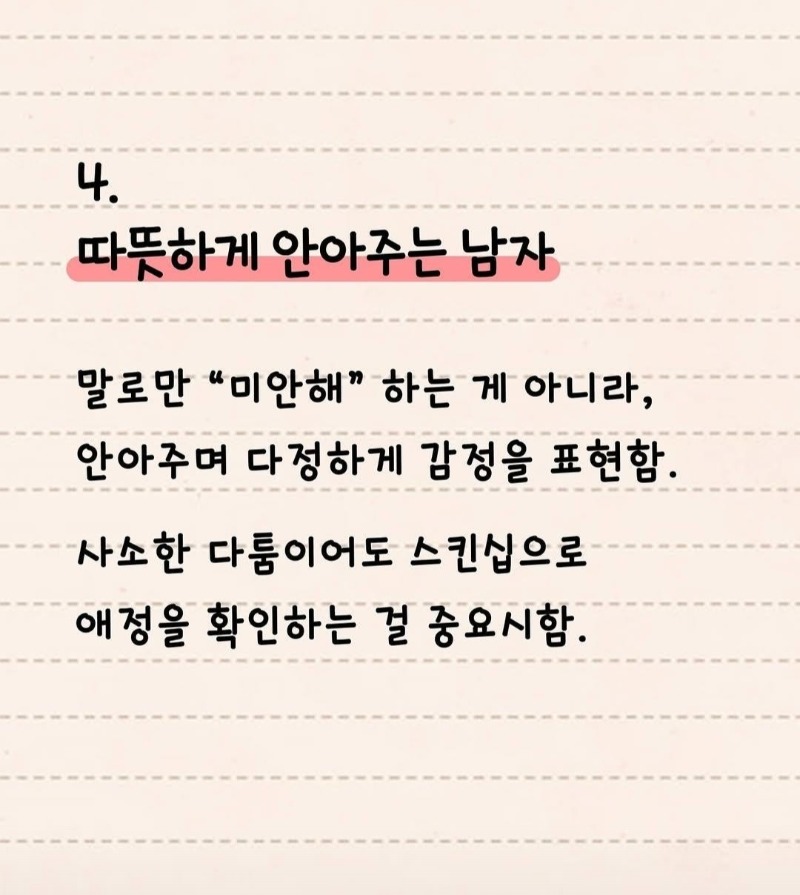 4.
따뜻하게 안아주는 남자
말로만 “미안해” 하는 게 아니라,
안아주며 다정하게 감정을 표현함.
사소한 다툼이어도 스킨십으로
애정을 확인하는 걸 중요시함.